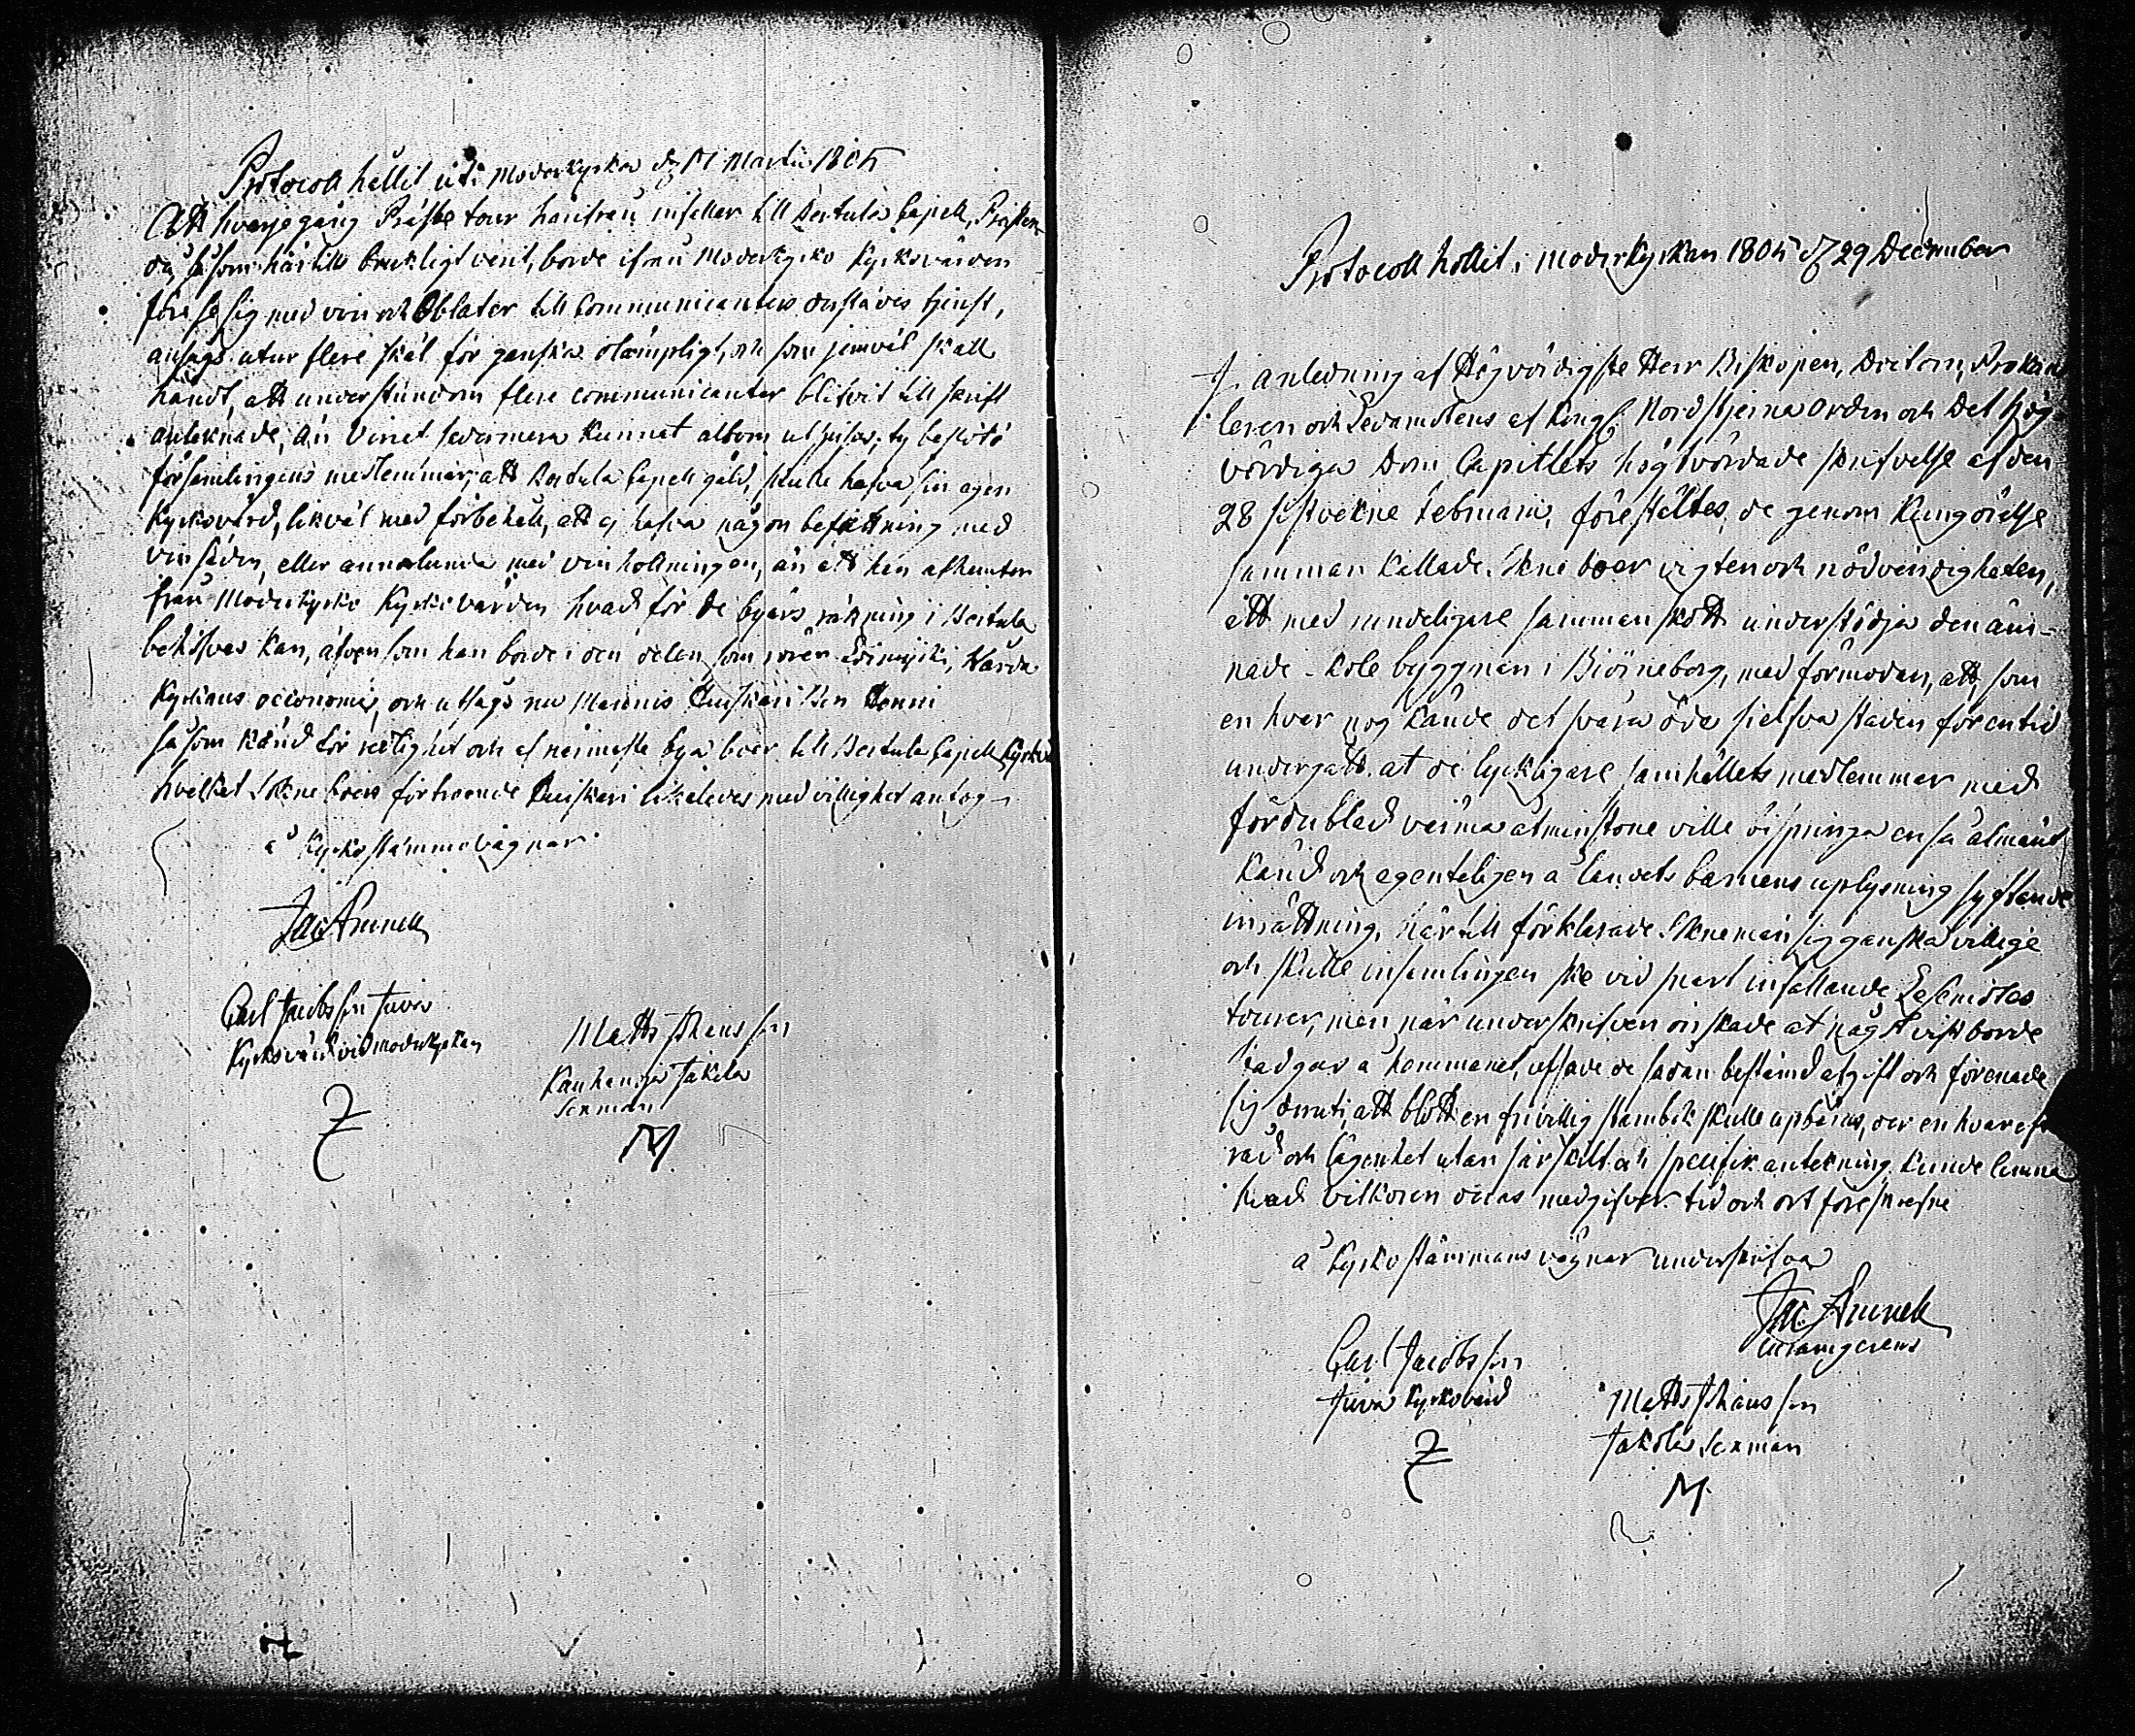 Protocoll hållit uti Moderkyrko d. 17 Martii 1805
Att hvarje gång Präste tour häri från infaller till Bertula Capell, Prästen
då såsom här till brukligt varit, borde ifrån Moderkyrko Kyrkovärden
förse sig med vin och Oblater till Communicanters derstädes tjenst,
ansågs utur flere skäl för ganska olämpligt, och som jemväl skall
händt, att understundom flere communicanter blifvit till skrift
anteknade, än Vinet sedermera kunnat altom utspisas; ty beslöts
församlingens medlemmar, att Bertula Capell gäld, skulle hafva sin egen
Kyrkovärd, likväl med förbehåll, att ej hafva någon befattning med
vin säden, eller annorlunda med vin hållningen, än att han afhemter
från Moderkyrko Kyrkovärden hvad för de byars räkning i Bertula
behöfvas kan, äfven som han borde i den delen, som rörer, vårda
Kyrkans oeconomie, och utsågs nu Mannis
såsom känd för redlighet och af närmaste bya boer till Bertula Capell Kyrkov
hvilket Sokne boers förtroende likaledes med villighet antog
å Kyrkostämmo vägnar
Jac Arenell
Carl Jacobsson Juva
Kyrkovärd vid Moderkyrkan
Matts Johansson
Kauhanoja Jakola
Sexman
M
Protocoll hållit i moderkyrkan 1805 d. 29 December
I anledning af Högvördigste Herr Biskopen, Doctorn, Prokans
leren och Ledamotens af Kongl. Nordstjerna Orden och Det Hög
vördiga Dom Capitlets högtvördade skrifvelse af den
28 sistvekne Februarii, föreställtes, de genom Kungörelse
samman kallade Sokne boer vigten och nödvendigheten,
att med mindeligare samman skott understödja den äm-
nade skole byggnan i Biörneborg, med förmodan, att, som
en hvar nog kände det svåra öde sielfva staden för en tid
undergått, at de lyckligare samhällets medlemmar med
fördublad värma åtminstone ville öfspringa en så almänt
känd och egenteligen å landets barnens uplysning syftande
inrättning. Här till förklarade Soknemän sig ganska villige
och skulle insamlingen ske vid snart infallande Läsemötes
tourer, men när underskrifven önskade at något vist borde
stadgas å hemmanet, afsade de sådan bestämd afgift och förenade
sig deruti, att blott en frivillig stambok skulle upbäras, der en hvar eft
råd och lägenhet utan särskilt och specifik antekning kunde lemna
hvad vilkoren deras medgifver. tid och ort föreskrefne
å Kyrkostämmans vägnar underskrifva
Jac Arenell
Carl Jacobsson
Juva Kyrkovärd
Matts Johansson
Jakola Sexman
M